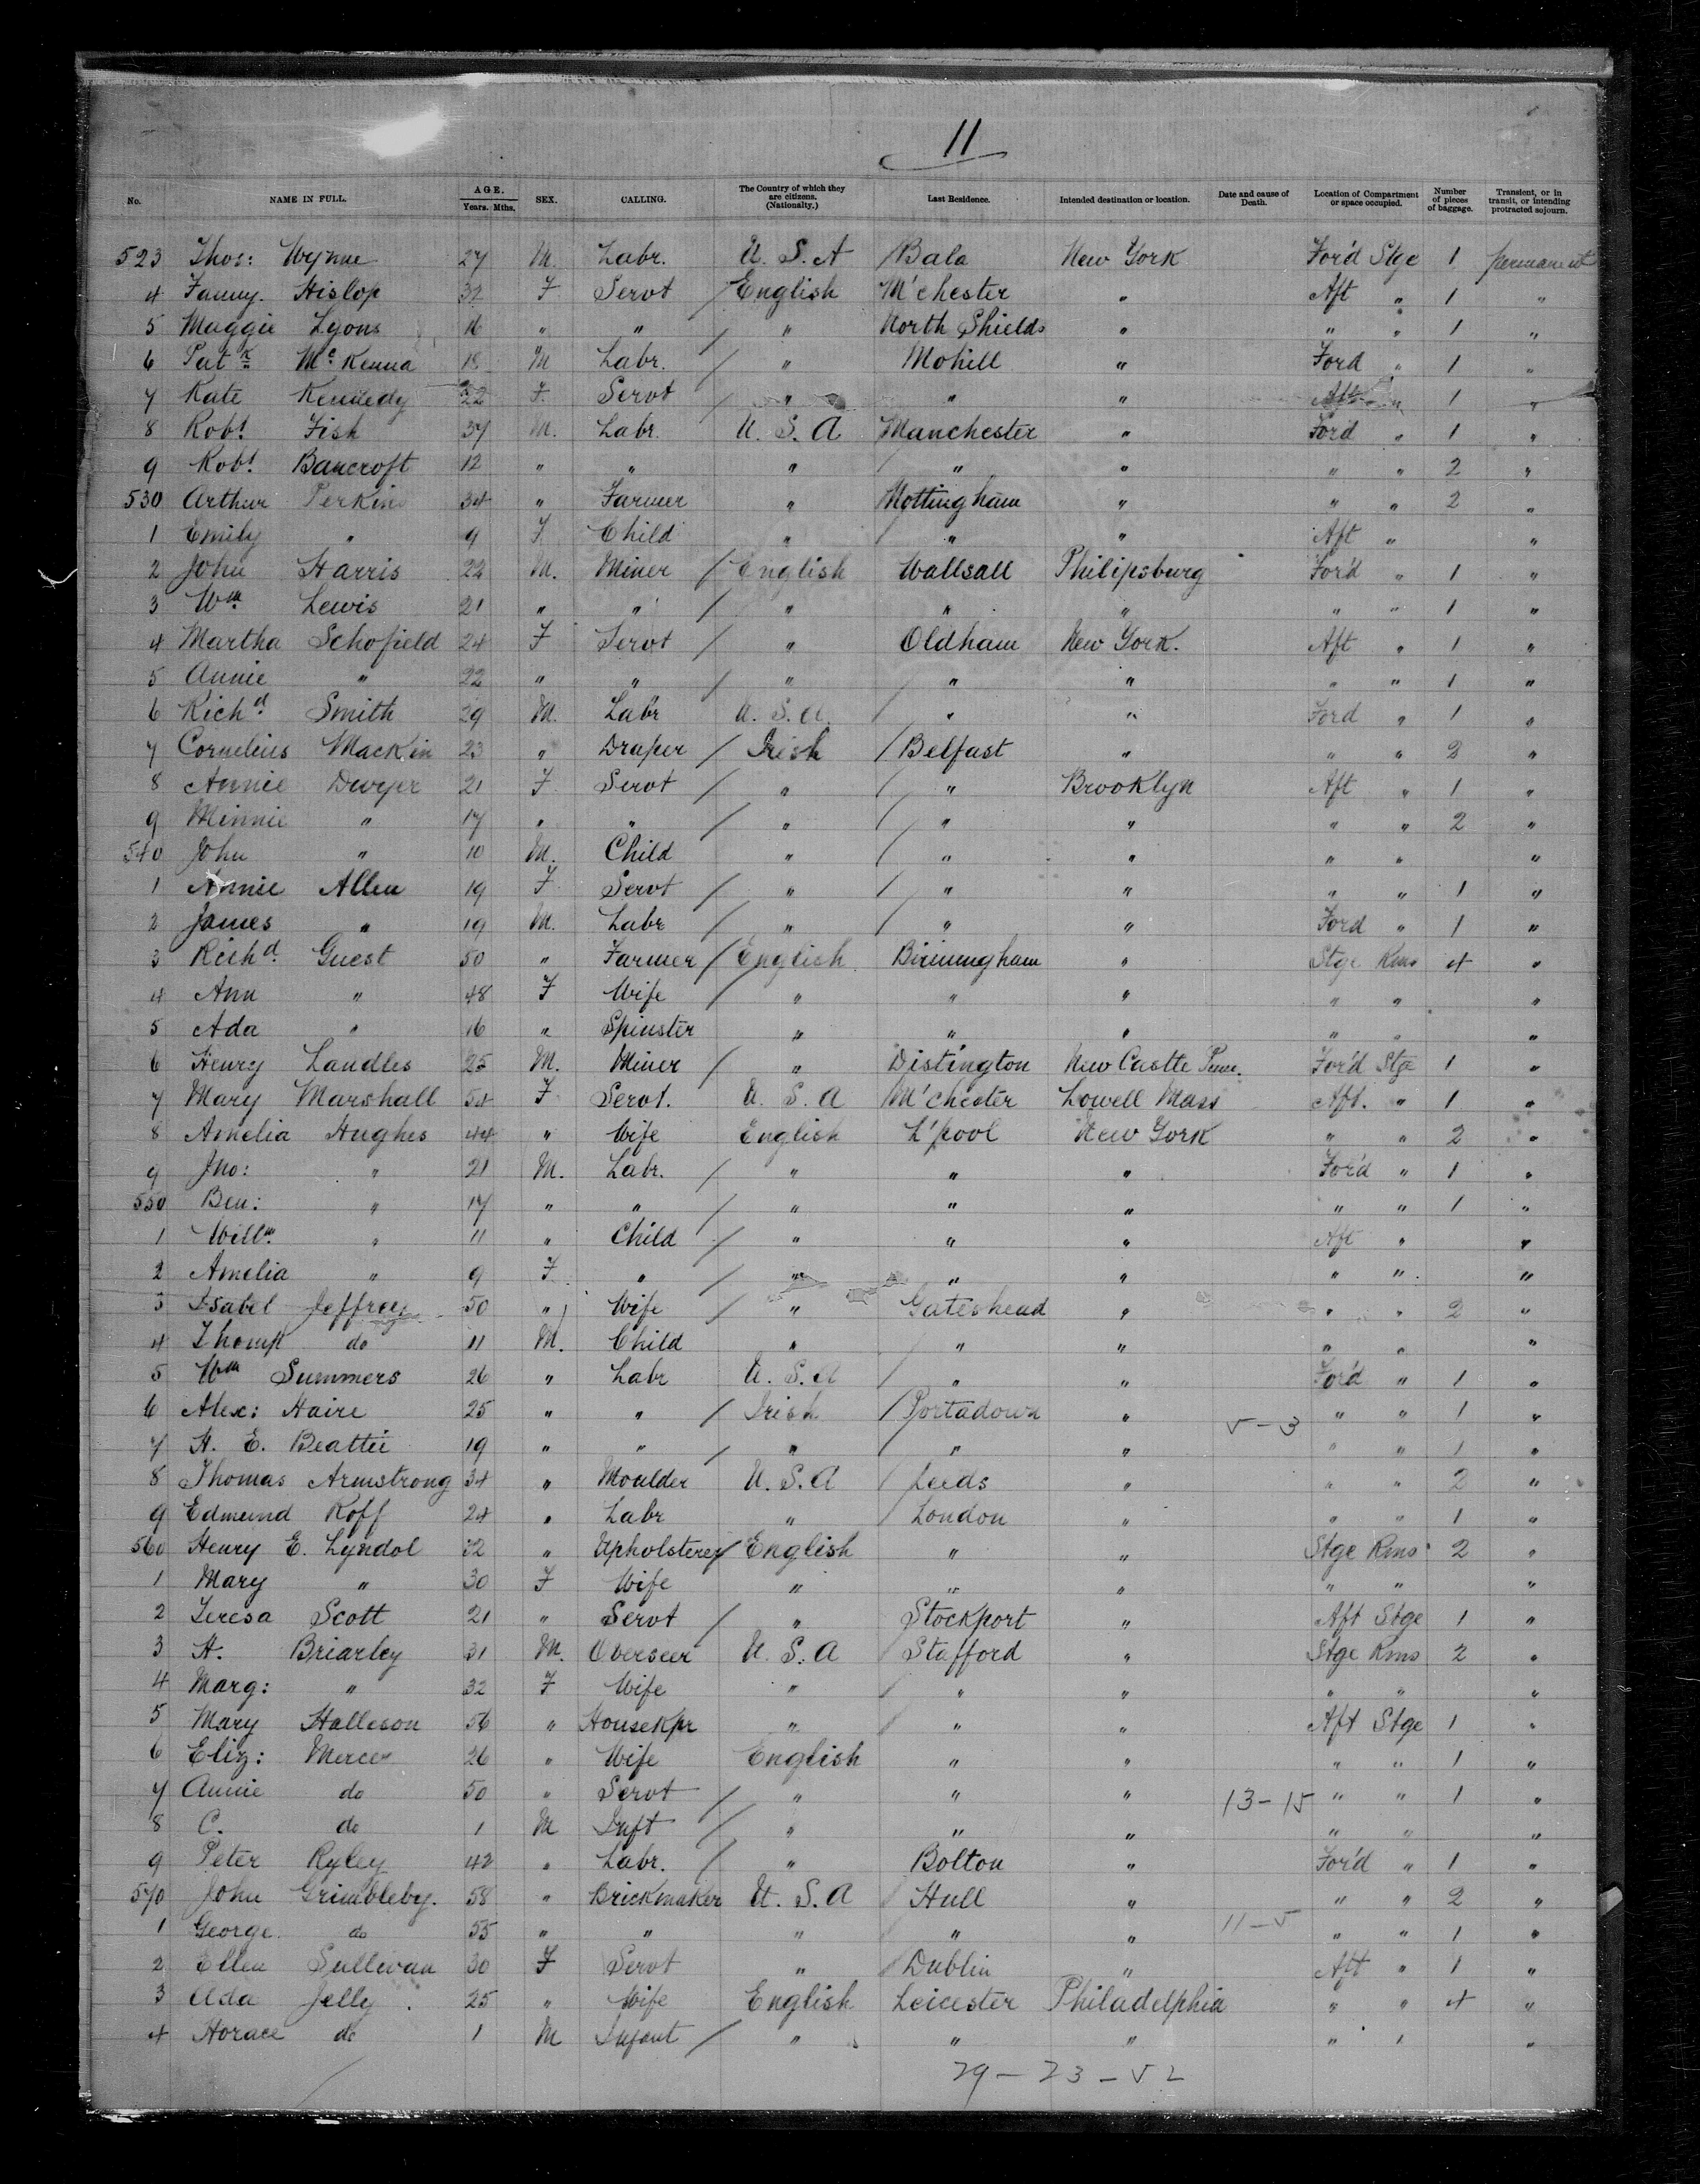 11
No. NAME IN FULL. AGE. Years. Mths. SEX. CALLING. The Country of which they are citizens. (Nationalty.) Last Residence. Intended destination or location. Date and cause of Death. Location of Compartment or space occupied. Number of pieces of baggage. Transient, or in transit, or intending protracted sojourn.
523 Thos: Wynne 27 M. Labr. U. S. A Bala New York For'd Stge 1 permanent
4 Fanny. Hislop 32 F Servt English M'chester " Aft " 1 "
5 Maggie Lyons 16 " " " North Shields " " " 1 "
6 Patk McKenna 18 M Labr. " Mohill " Ford " 1 "
7 Kate Kennedy 22 F Servt " " " Aft " 1 "
8 Robt Fish 37 M. Labr. U. S. A Manchester " Ford " 1 "
9 Robt Bancroft 12 " " " " " " " 2 "
530 Arthur Perkins 34 " Farmer " Nottingham " " " 2 "
1 Emily " 9 F Child " " " Aft " "
2 John Harris 22 M. Miner English Wallsall Philipsburg For'd " 1 "
3 Wm Lewis 21 " " " " " " " 1 "
4 Martha Schofield 24 F Servt " Oldham New York. Aft " 1 "
5 Annie " 22 " " " " " " " 1 "
6 Richd Smith 29 M. Labr U. S. A. " " Ford " 1 "
7 Cornelius Mackin 23 " Draper Irish Belfast " " " 2 "
8 Annie Dwyer 21 F Servt " " Brooklyn Aft " 1 "
9 Minnie " 17 " " " " " " " 2 "
540 John " 10 M. Child " " " " " "
1 Annie Allen 19 F Servt " " " " " 1 "
2 James " 19 M. Labr " " " Ford " 1 "
3 Richd Guest 50 " Farmer English Birmingham " Stge Rms 4 "
4 Ann " 48 F Wife " " " " " "
5 Ada " 16 " Spinster " " " " " "
6 Henry Landles 25 M. Miner " Distington New Castle Penn. For'd Stge 1 "
7 Mary Marshall 54 F Servt. U. S. A M'chester Lowell Mass Aft. " 1 "
8 Amelia Hughes 44 " Wife English L'pool New York " " 2 "
9 Jno: " 21 M. Labr. " " " For'd " 1 "
550 Ben: " 17 " " " " " " " 1 "
1 Willm " 11 " Child " " " Aft " "
2 Amelia " 9 F " " " " " " "
3 Isabel Jeffrey 50 " Wife " Gateshead " " " 2 "
4 Thomp do 11 M. Child " " " " " "
5 Wm Summers 26 " Labr U. S. A " " For'd " 1 "
6 Alex: Haire 25 " " Irish Portadown " 5-3 " " 1 "
7 H. E. Beattie 19 " " " " " " " 1 "
8 Thomas Armstrong 34 " Moulder U. S. A Leeds " " " 2 "
9 Edmund Roff 24 " Labr " London " " " 1 "
560 Henry E. Lyndol 32 " Upholsterer English " " Stge Rms 2 "
1 Mary " 30 F Wife " " " " " "
2 Teresa Scott 21 " Servt " Stockport " Aft Stge 1 "
3 H. Briarley 31 M. Overseer U. S. A Stafford " Stge Rms 2 "
4 Marg: " 32 F Wife " " " " " "
5 Mary Halleson 56 " Housekpr " " " Aft Stge 1 "
6 Eliz: Mercer 26 " Wife English " " " " 1 "
7 Annie do 50 " Servt " " " 13-15 " " 1 "
8 C. do 1 M Inft " " " " " "
9 Peter Ryley 42 " Labr. " Bolton " For'd " 1 "
570 John Grimbleby. 58 " Brickmaker U. S. A Hull " " " 2 "
1 George. do 55 " " " " " 11-5 " " 1 "
2 Ellen Sullivan 30 F Servt " Dublin " Aft " 1 "
3 Ada Jelly. 25 " Wife English Leicester Philadelphia " " 4 "
4 Horace do 1 M Infant " " " " " "
29-23-52